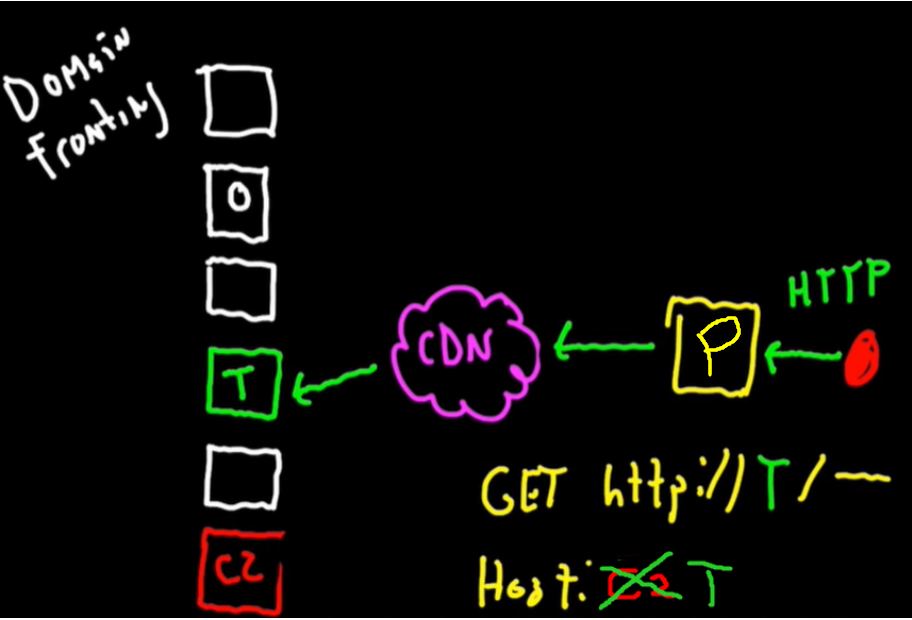 Domain
Fronting
O
T
C2
CDN
P
HTTP
GET http://T/—
Host: C2 T